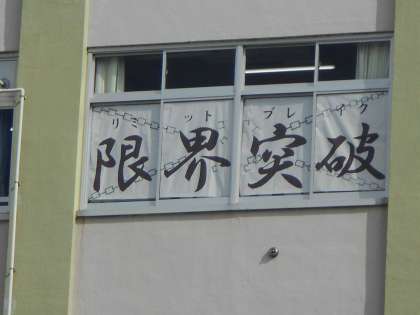 リミットブレイク
限界突破